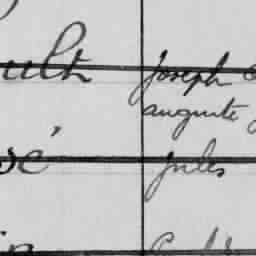 ult Joseph
auguste
sé Jules
in